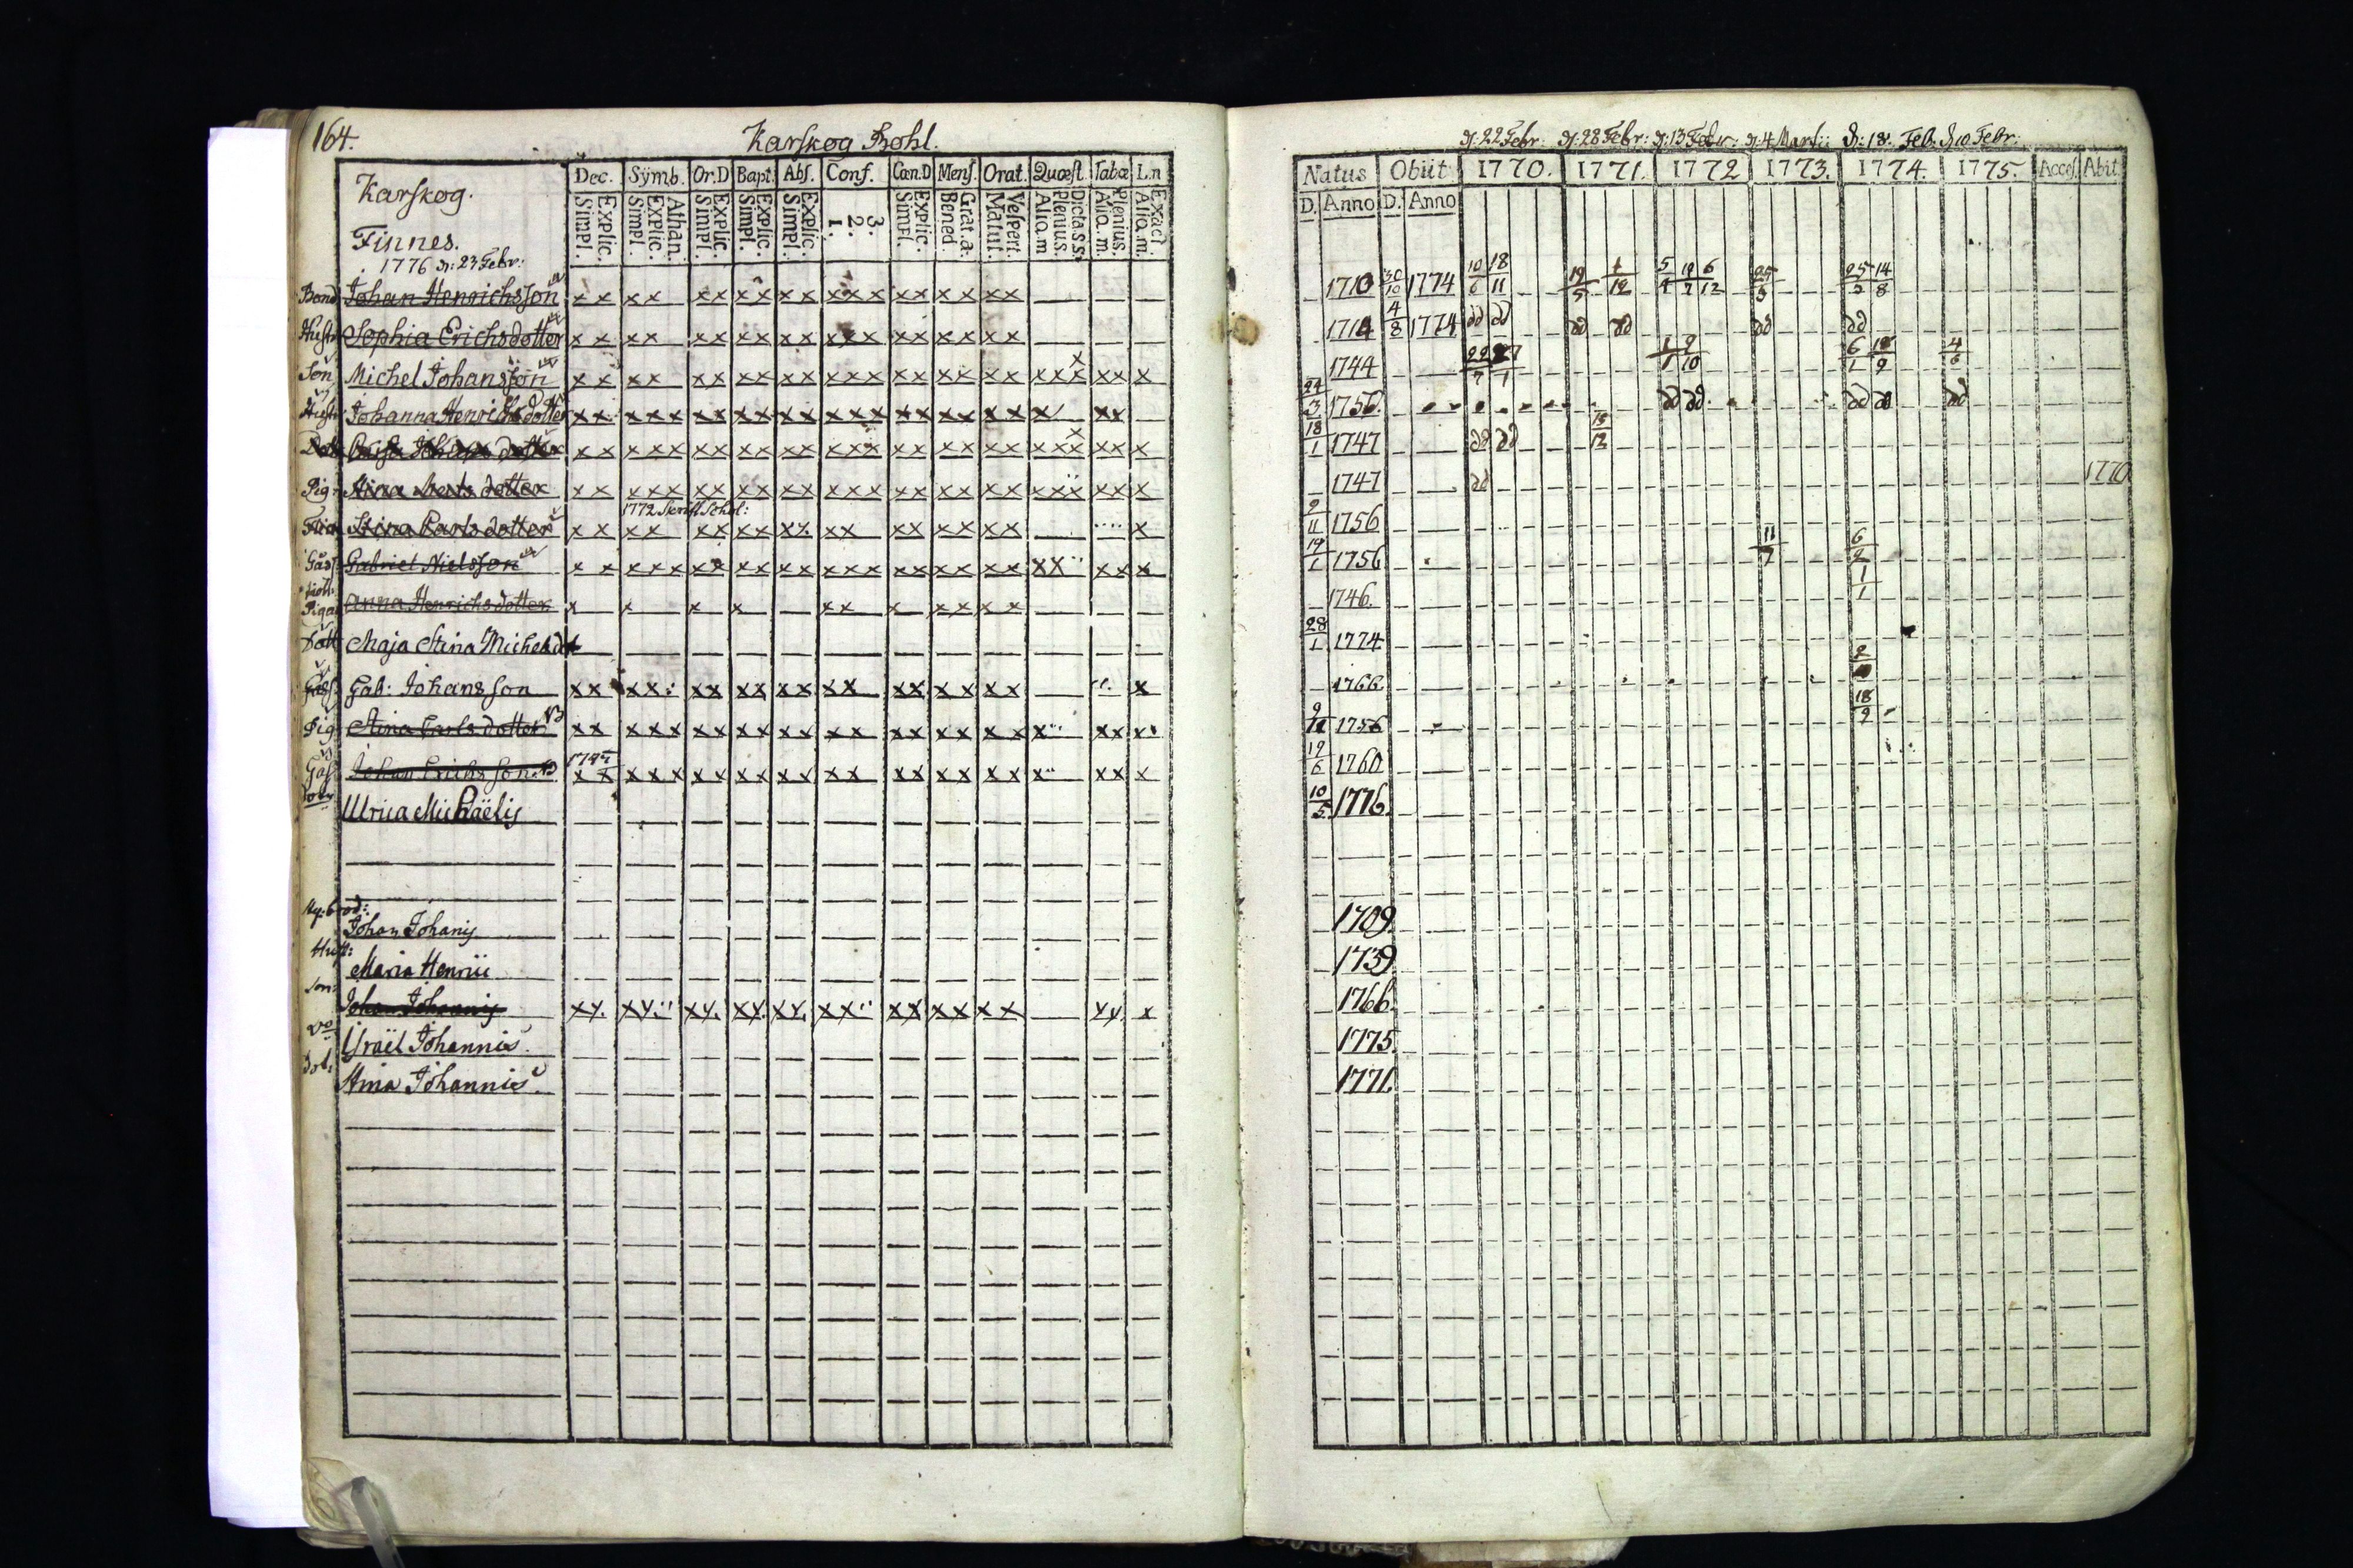 164.
Karskog Bohl.
Karskog.
Finnes.
1776 d: 23 Febr:
Dec. Symb. Or.D Bapt. Abs. Conf. Cœn.D Mens. Orat. Quæst. Tabœ L.n
Explic. Simpl. Athan. Explic. Simpl. Explic. Simpl. Explic. Simpl. Explic. Simpl. 3. 2. 1. Explic. Simpl. Grat. a. Bened. Vespert. Matut. Dicta S.S. Plenius. Aliq. m. Plenius. Aliq. m. Exact. Aliq. m.
Bond Johan Henrichsson x x x x x x x x x x x x x x x x x x x
Hustr Sophia Erichsdotter x x x x x x x x x x x x x x x x x x x
Son Michel Johansson x x x x x x x x x x x x x x x x x x x x x x x x x x
Hustr: Johanna Henrichsdotter x x x x x x x x x x x x x x x x x x x x x x x
Johans dotter x x x x x x x x x x x x x x x x x x x x x x x x x x x
Pig: Stina Mats dotter x x x x x x x x x x x x x x x x x x x x x x x x x
1772
Stina Carls dotter x x x x x x x x x x x x x x x x x x x
Gabriel Nielsson x x x x x x x x x x x x x x x x x x x x x x x x x
Piga Anna Henrichsdotter x x x x x x x x x x x
Dott Maja Stina Michelsdot
Gab: Johansson x x x x x x x x x x x x x x x x x x x
Pig Stina Carls dotter x x x x x x x x x x x x x x x x x x x x x x x
Johan Erichsson x x x x x x x x x x x x x x x x x x x x x x x
Ulrica Michaëlis
Johan Johanis
Hust:
Maria Henrici
Son:
Johan Johannis x x x x x x x x x x x x x x x x x x x x x
Israël Johannis
Dot:
Stina Johannis
d: 22 Febr: d: 28 Febr: d: 13 Febr: d: 4 Martii: d: 18. Feb: d. 10 Febr:
Natus Obiit 1770. 1771. 1772 1773. 1774. 1775. Acces. Abit
D. Anno D. Anno
1710 30/10 1774 10/6 18/11 19/5 1/12 25/3 25/2 14/8
1714 4/8 1774 dd dd dd dd dd dd
1744 6/1 18/9 4/6
24/3 1756. dd dd dd dd dd
18/1 1747 dd dd 15/12
1747 dd 1770
2/11 1756
19/1 1756 11/7 6/2
1746. 1/1
28/1 1774
1766
1756 18/9
19/6 1760
10/5 1776.
1709.
1739
1766.
1775.
1771.